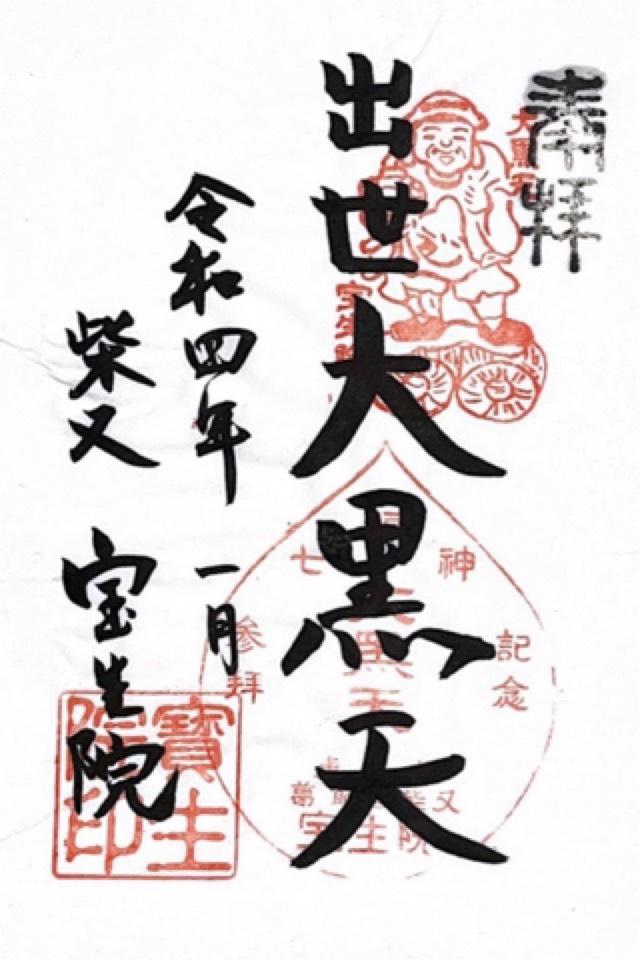 奉拝
大黒天
出世大黒天
七
福
神
記念
参拝
大黒天
葛飾柴又
宝生院
令和四年 一月
柴又 宝生院
寶生
院印